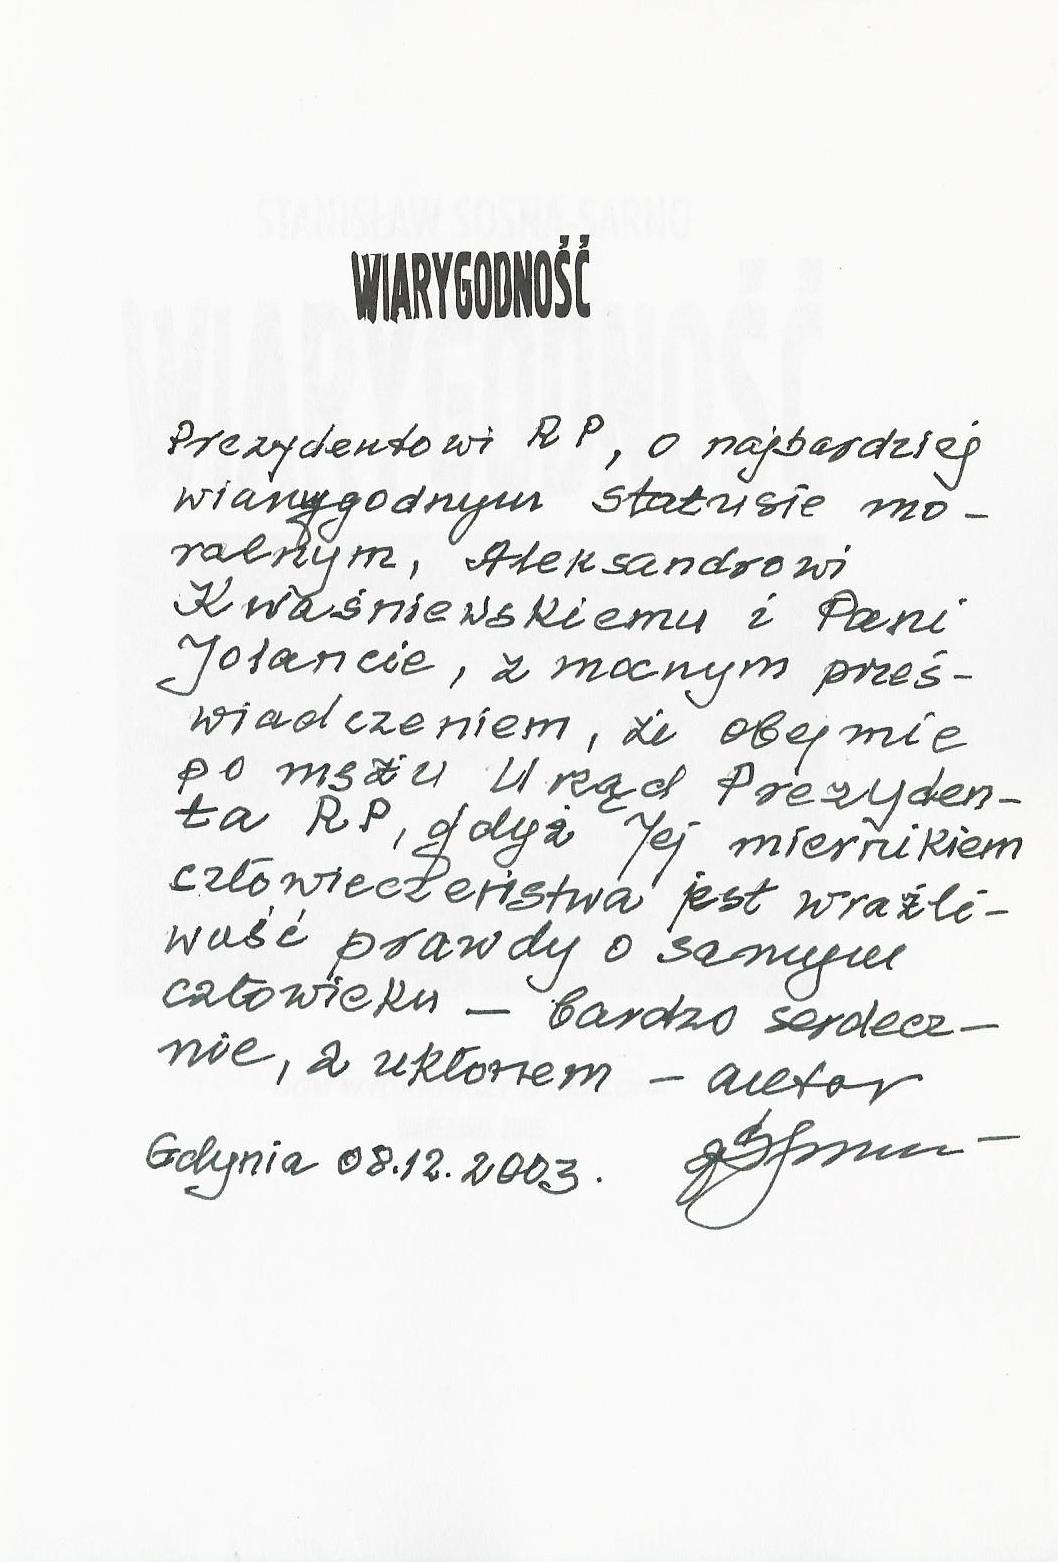 STANISŁAW SOSNA-SARNO
WIARYGODNOŚĆ
WIARYGODNOŚĆ
Prezydentowi RP, o najbardziej
wiarygodnym statusie mo-
ralnym, Aleksandrowi
Kwaśniewskiemu i Pani
Jolancie, z mocnym prześ-
wiadczeniem, że obejmie
po mężu Urząd Prezyden-
ta RP, gdyż Jej miernikiem
człowieczeństwa jest wraźli-
wość prawdy o samym
człowieku – bardzo serdecz-
nie, z ukłonem – autor
Gdynia 08.12.2003.